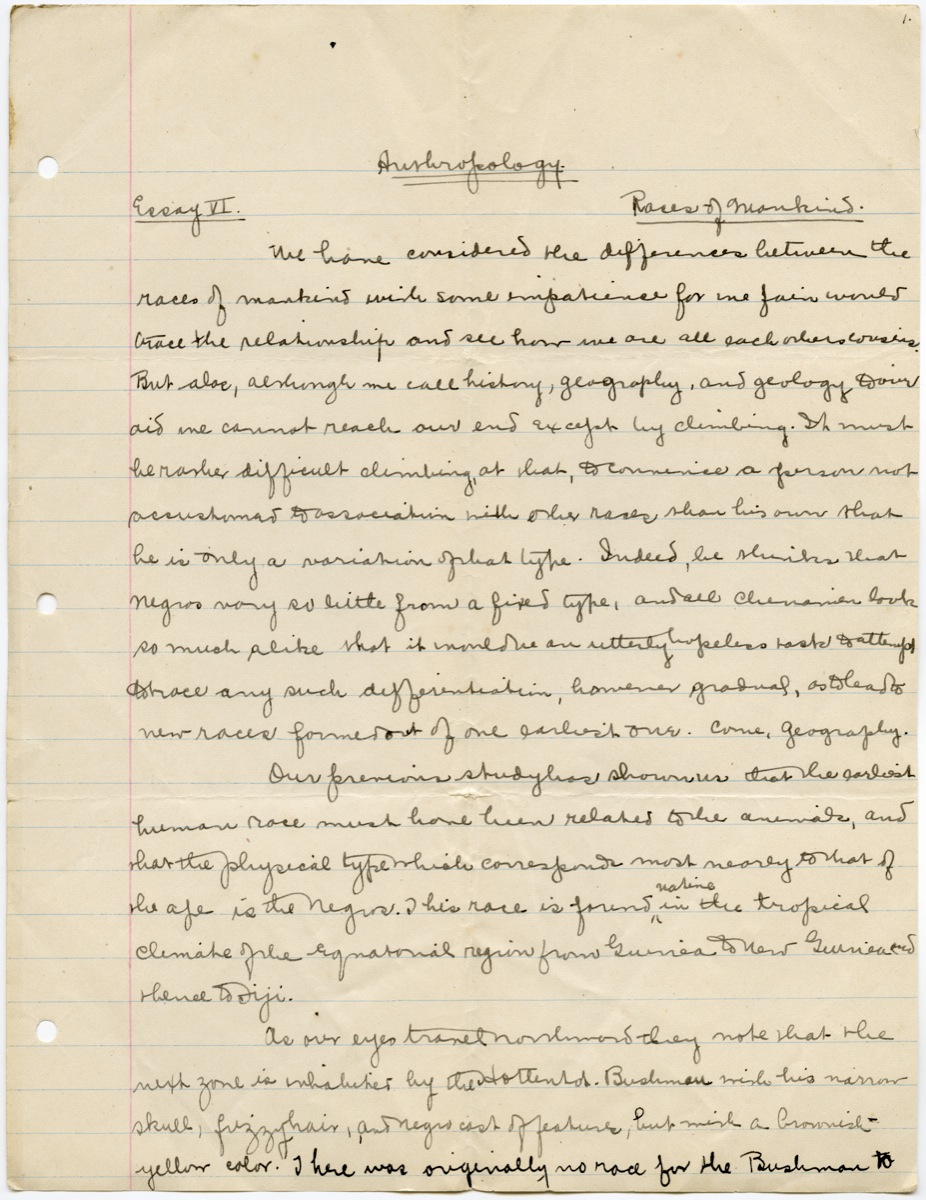 1.
Anthropology.
Essay VI. Races of Mankind.
We have considered the differences between the
races of mankind with some impatience for we fain would
trace the relationship and see how we are all each others cousins.
But alas, although we call history, geography, and geology to our
aid we cannot reach our end except by climbing. It must
be rather difficult climbing, at that, to convince a person not
accustomed to association with other races than his own that
he is only a variation of that type. Indeed, he thinks that
negros vary so little from a fixed type, and all Chinamen look
so much alike that it would be an utterly hopeless task to attempt
to trace any such differentiation, however gradual, as to lead to
new races formed out of one earliest one. Come, Geography.
Our previous study has shown us that the earliest
human race must have been related to the animals, and
that the physical type which corresponds most nearly to that of
the ape is the Negro. This race is found native in the tropical
climate of the Equatorial region from Guinea to New Guinea and
thence to Fiji.
As our eyes travel northward they note that the
next zone is inhabited by the Hottentot. Bushman with his narrow
skull, frizzy hair, and negro cast of feature, but with a brownish-
yellow color. There was originally no race for the Bushman to